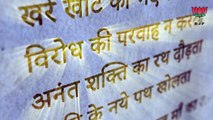 खरे खोटे का
विरोध की परवाह न करत
अनंत शक्ति का रथ दौड़ता
के नये पथ खोलता